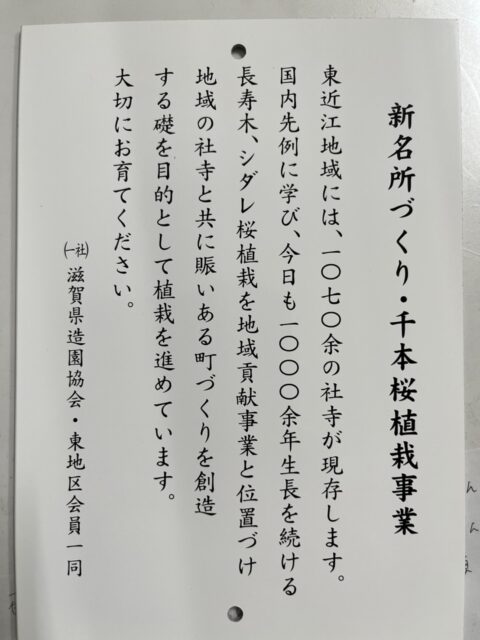 新名所づくり・千本桜植栽事業
東近江地域には、一〇七〇余の社寺が現存します。
国内先例に学び、今日も一〇〇〇余年生長を続ける
長寿木、シダレ桜植栽を地域貢献事業と位置づけ
地域の社寺と共に賑いある町づくりを創造
する礎を目的として植栽を進めています。
大切にお育てください。
㈳滋賀県造園協会・東地区会員一同